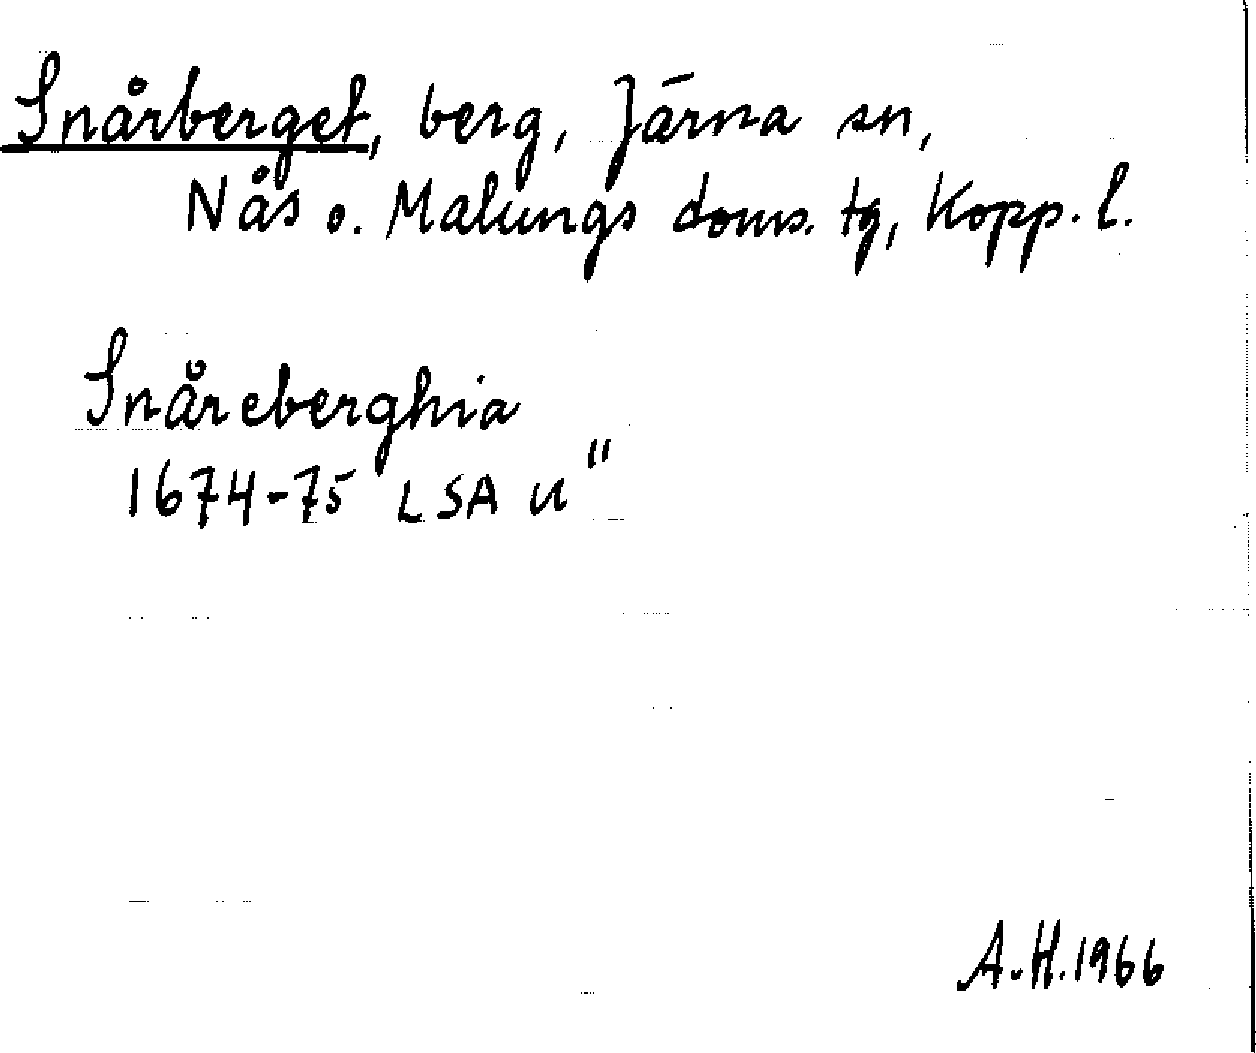 Snårberget, berg, Järna sn,
Nås o. Malungs doms. tg, Kopp. l.
Snåreberghia
1674-75 LSA u"
A.H. 1966